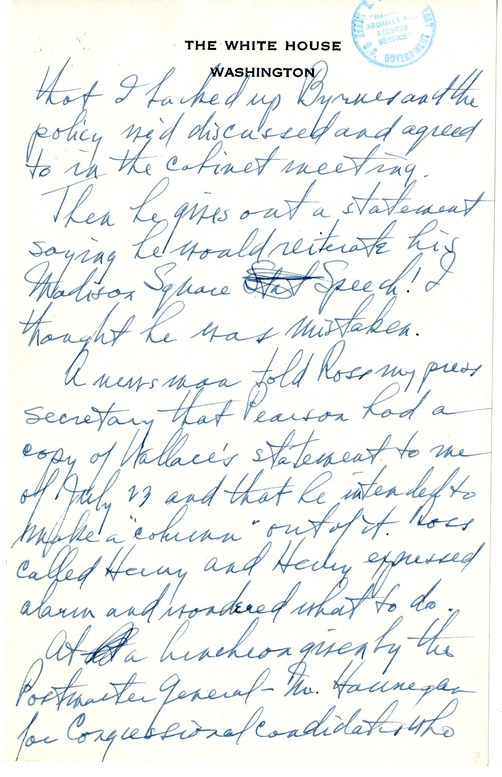 THE WHITE HOUSE
WASHINGTON
that I backed up Byrnes and the
policy we'd discussed and agreed
to in the cabinet meeting.
Then he gives out a statement
saying he would reiterate his
Madison Square Speech! I
thought he was mistaken.
A news man told Ross my press
secretary that Pearson had a
copy of Wallace's statement to me
of July 23 and that he intended to
make a "column" out of it. Ross
called Henry and Henry expressed
alarm and wondered what to do.
At a luncheon given by the
Postmaster General - Mr. Hannegan
for Congressional candidates who